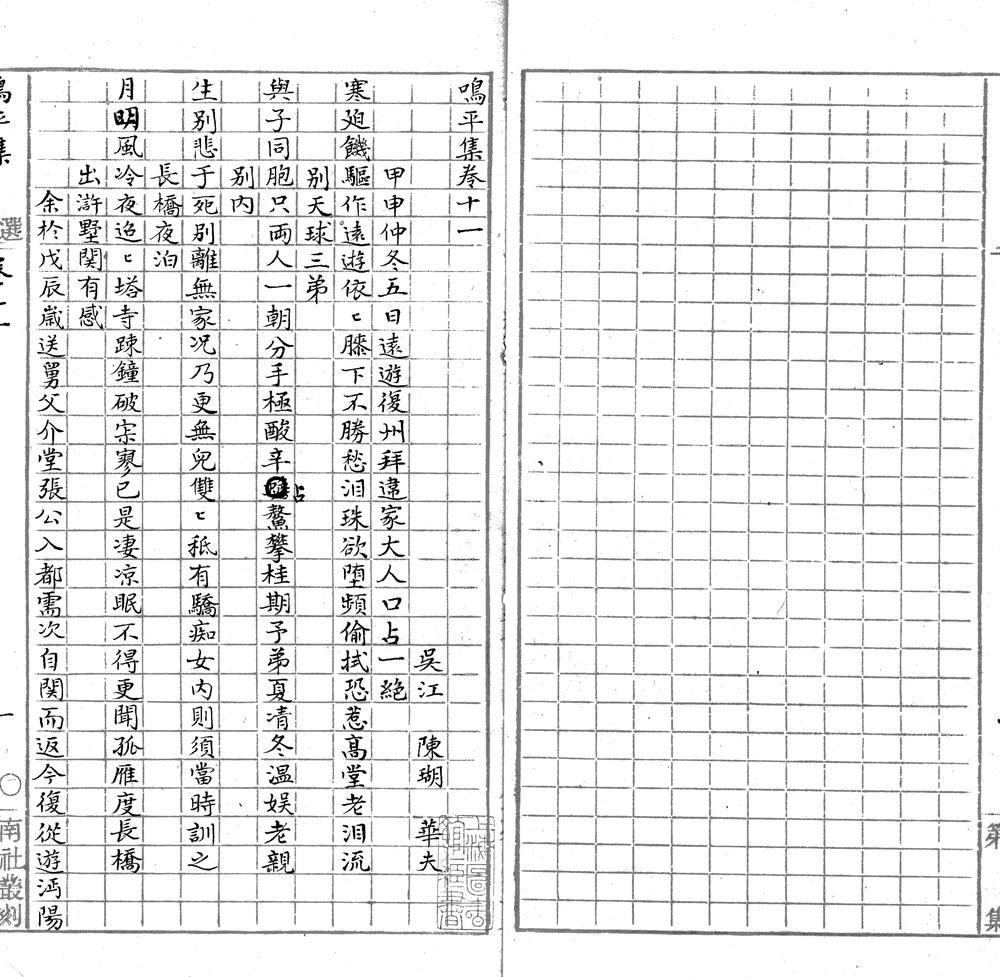 鳴平集卷十一
吳江 陳瑚 華夫
甲申仲冬五日遠遊復州拜違家大人口占一絕
寒廹饑驅作遠遊依〻膝下不勝愁泪珠欲墮頻偷拭恐惹髙堂老泪流
别天球三弟
與子同胞只兩人一朝分手極酸辛占鰲攀桂期予弟夏凊冬溫娱老親
别内
生别悲于死别離無家况乃更無兒雙〻秪有驕痴女内則須當時訓之
長橋夜泊
月明風冷夜迢〻塔寺踈鐘破寂寥已是凄凉眠不得更聞孤雁度長橋
出滸墅関有感
余於戊辰嵗送舅父介堂張公入都需次自関而返今復從遊沔陽
鳴平集
選
卷十一
一
南社叢刻
第
集